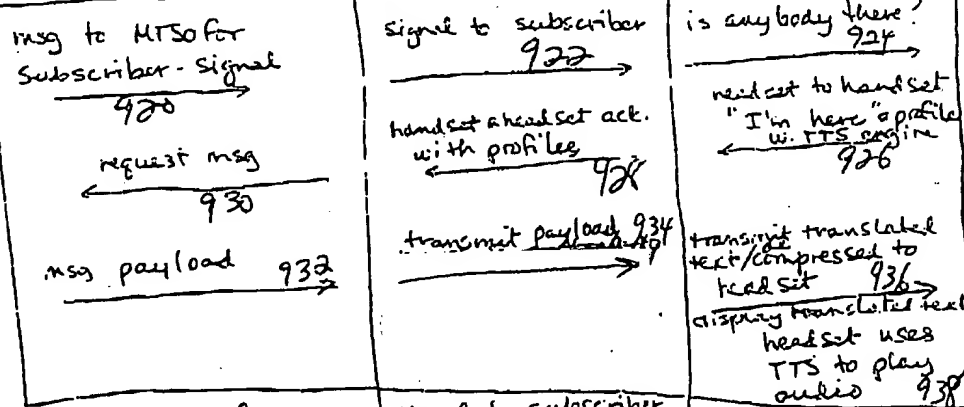 msg to MTSO for
Subscriber - Signal
920
request msg
930
msg payload 932
signal to subscriber
922
handset & headset ack.
with profiles
928
transmit payload 934
is anybody there?
924
headset to handset
"I'm here" & profile
w. TTS engine
926
transmit translated
text/compressed to
headset 936
display translated text
headset uses
TTS to play
audio 938
subscriber